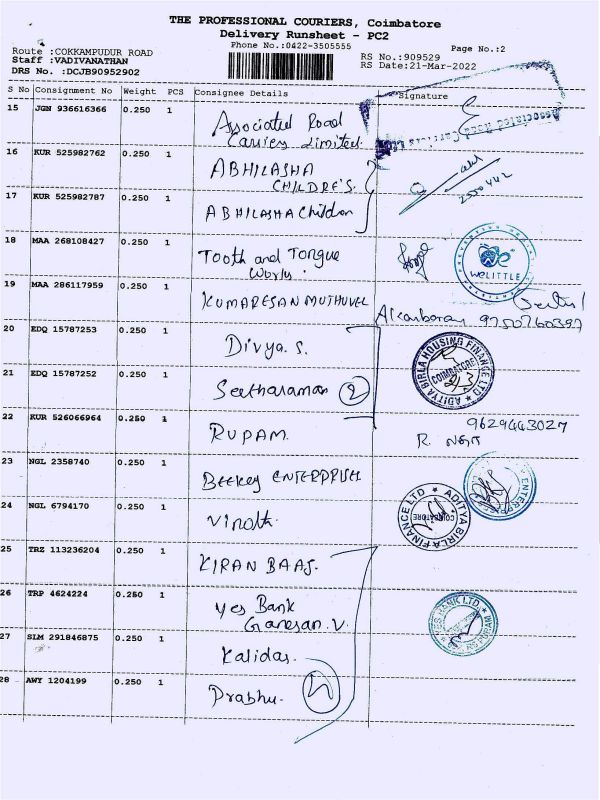 THE PROFESSIONAL COURIERS, Coimbatore
Delivery Runsheet - PC2
Phone No.:0422-3505555
Page No.:2
Route :COKKAMPUDUR ROAD
Staff :VADIVANATHAN
DRS No. :DCJB90952902
RS No.:909529
RS Date:21-Mar-2022
S No Consignment No Weight PCS Consignee Details Signature
15 JGN 936616366 0.250 1 Associated Road
Carriers Limited.
Associated Road Carriers Ltd
16 KUR 525982762 0.250 1 ABHILASHA
CHILDRE'S.
17 KUR 525982787 0.250 1 ABHILASHA Children
18 MAA 268108427 0.250 1 Tooth and Tongue
Works.
WELITTLE
19 MAA 286117959 0.250 1 KUMARESAN MUTHUVEL
9750760397
20 EDQ 15787253 0.250 1 Divya. S.
ADITYA BIRLA HOUSING FINANCE LTD
COIMBATORE
21 EDQ 15787252 0.250 1 Seetharaman 2
22 KUR 526066964 0.250 1 RUPAM.
9629443027
23 NGL 2358740 0.250 1 Beekey ENTERPRISES
ENTERPRISES
24 NGL 6794170 0.250 1 Vinoth.
ADITYA BIRLA FINANCE LTD
COIMBATORE
25 TRZ 113236204 0.250 1 KIRAN BAAS.
26 TRP 4624224 0.250 1 Yes Bank
Ganesan. V.
YES BANK LTD.
27 SLM 291846875 0.250 1 Kalidas.
28 AWY 1204199 0.250 1 Prabhu.